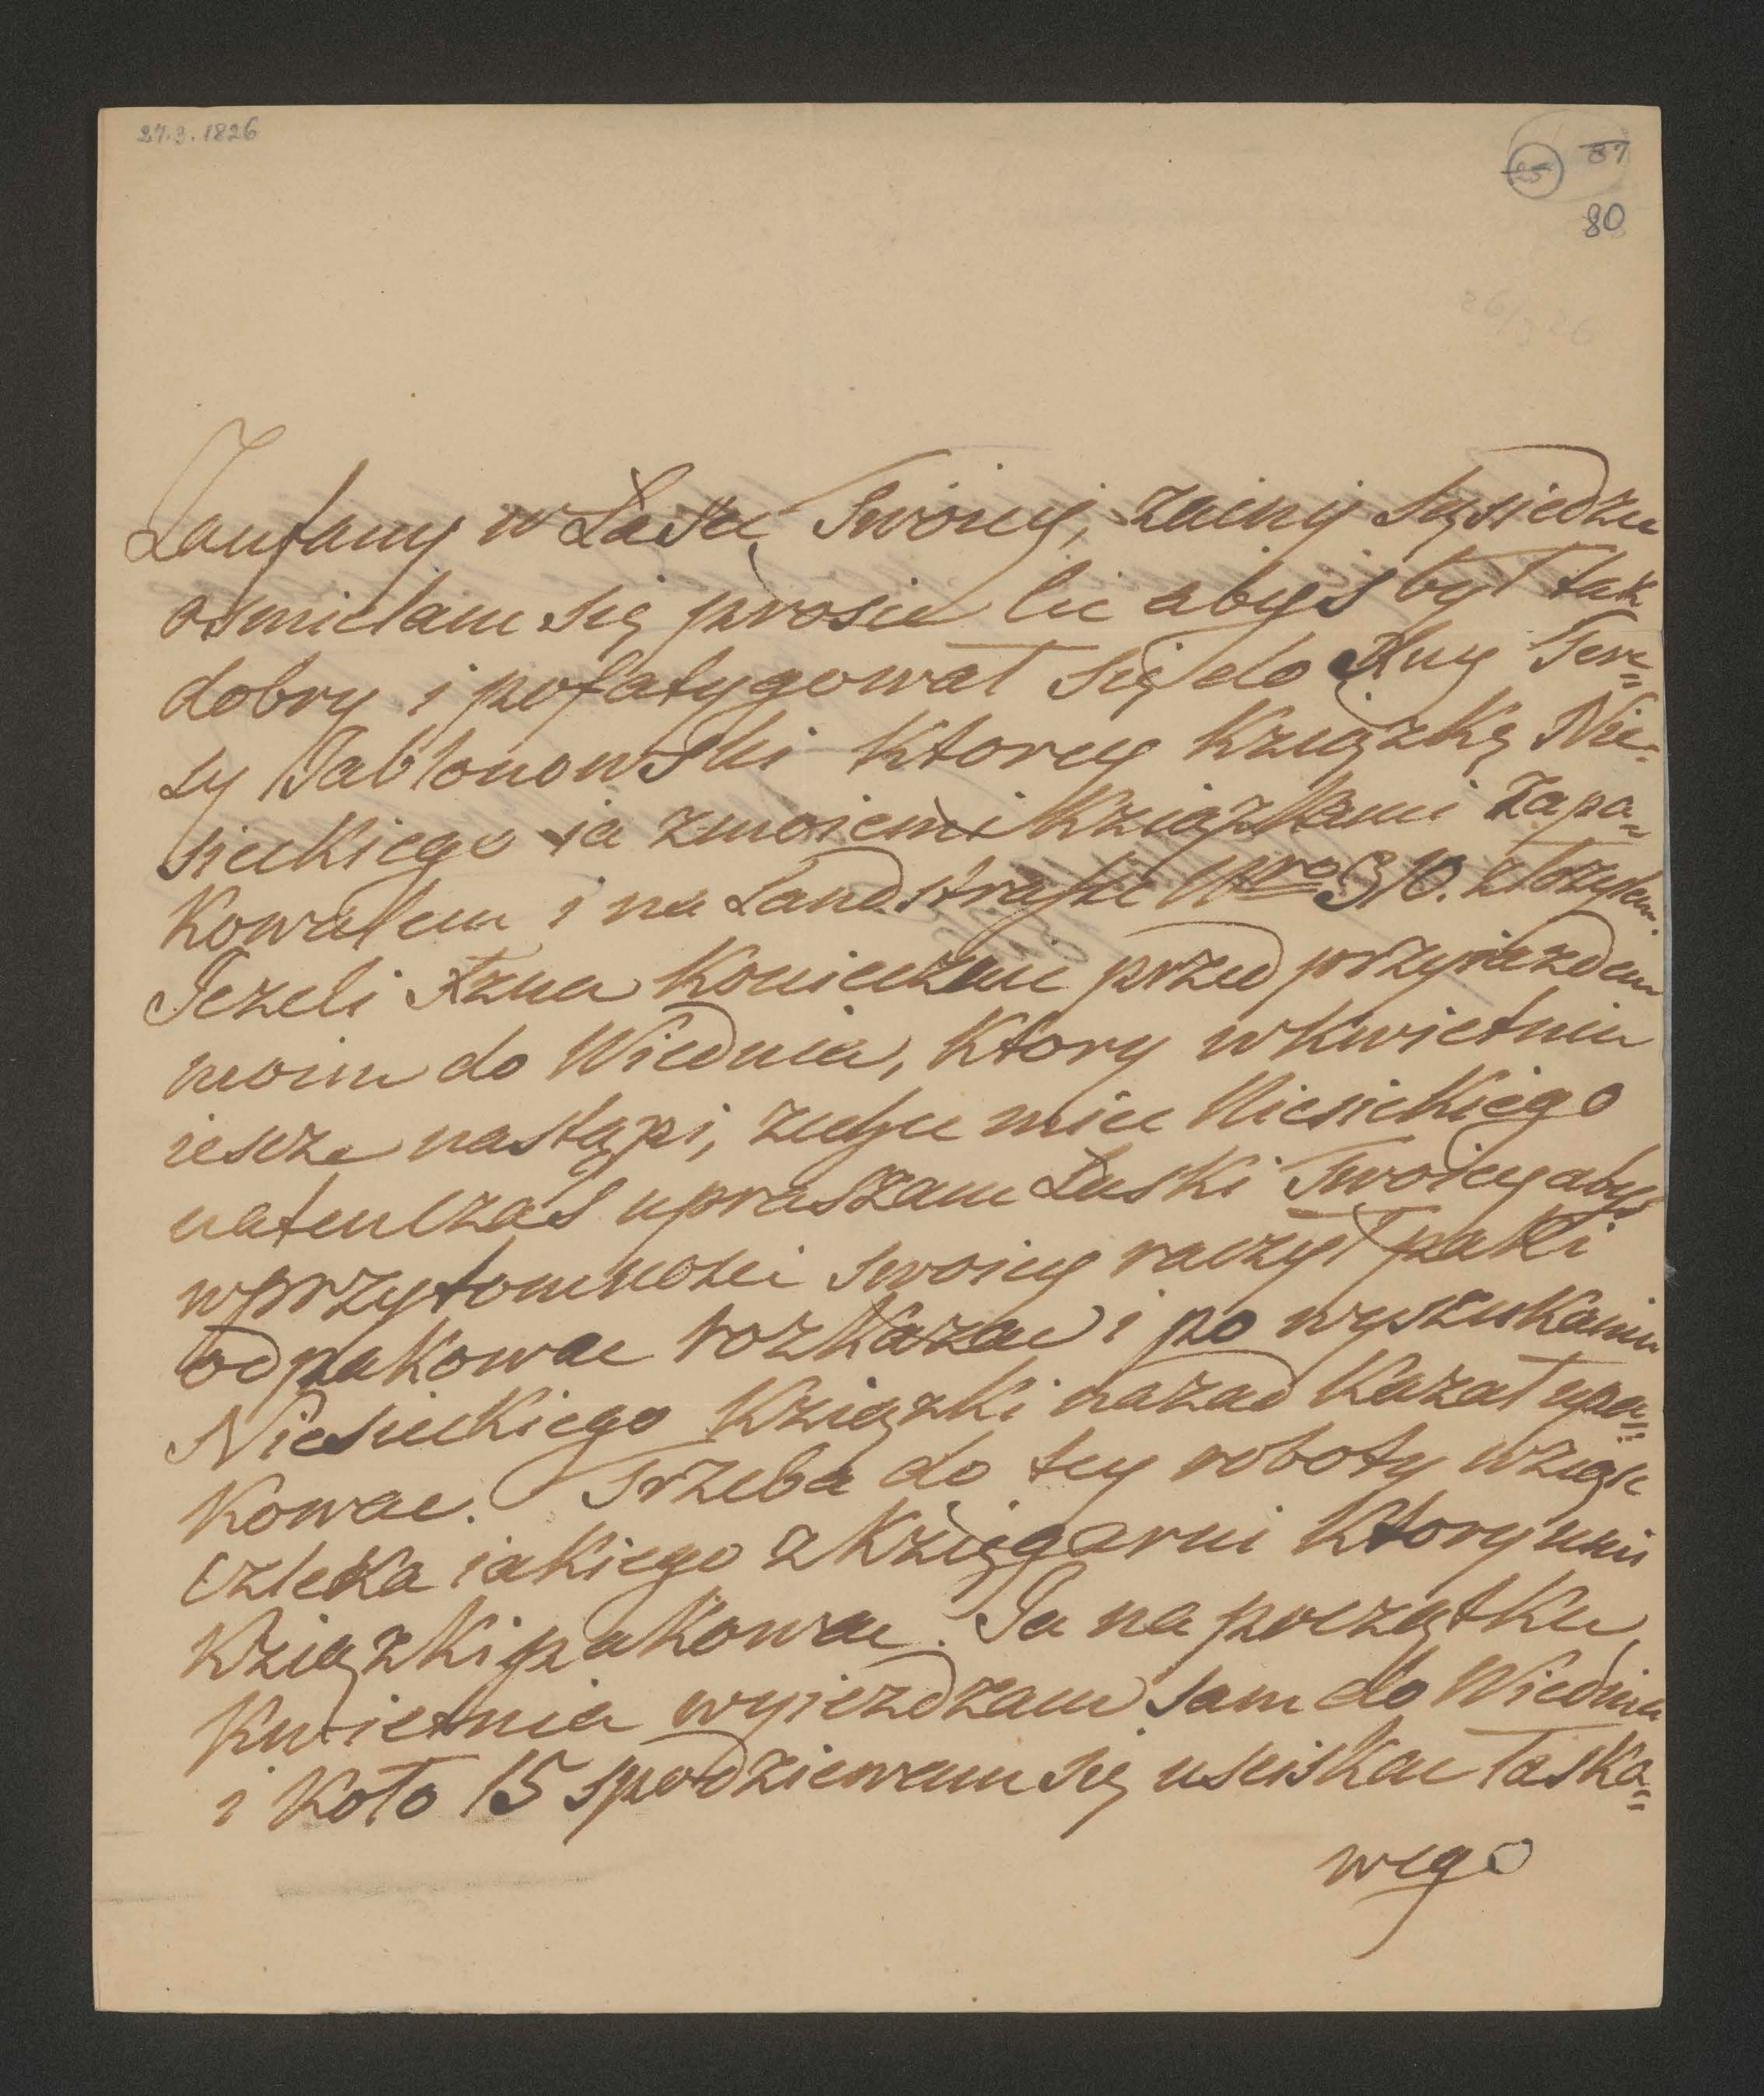 27.3.1826
25 87
80
26/3 26
Zaufany w Łasce Twoiey, zacny Sąsiedzie
osmielam się prosic Cie abyś był tak
dobry i pofatygował się do Xny Tere=
sy Jabłonowski ktorey Kziązkę Nie=
sieckiego ia zmoiemi Kziązkami zapa=
kowałem i na Landstrasse Nro 310. złozyłem.
Jezeli Xzna koniecznie przed przyiazdem
moim do Wiednia, ktory w kwietniu
iescze nastąpi, zechce miec Niesieckiego
natenczas upraszam Łaski Twoiey abyś
wprzytomnosci swoiey raczył paki
odpakowac rozkazac i po wyszukaniu
Niesieckiego Kziązki nazad kazał upa=
kowac. Trzeba do tey roboty wziąsc
czleka iakiego z Kzięgarni ktory umie
Kziązki pakowac. Ja na początku
Kwietnia wyiezdzam sam do Wiednia
i koło 15 spodziewam się usciskac Łaska=
wego